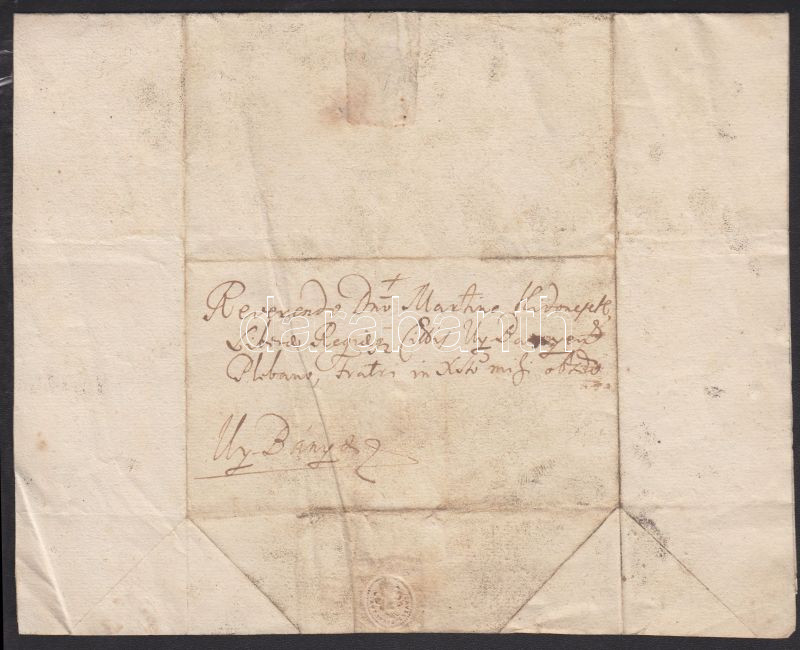 Reverendo Dno Martino
Liberae Regiaeq Cittis Uy Banyens
Plebano, fratri in Xsto mihi obsdo
Uy-Bányæ
darabanth